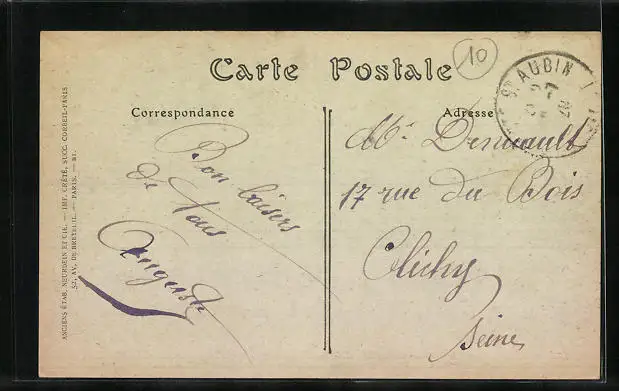 Carte Postale
10
St AUBIN
Correspondance
Adresse
Bon baisers
de tous
Auguste
Mr
17 rue du Bois
Clichy
Seine
ANCIENS ÉTAB. NEURDEIN ET CIE. — IMP. CRÉTÉ, SUCC. CORBEIL-PARIS
52, AV. DE BRETEUIL. — PARIS. — B1.